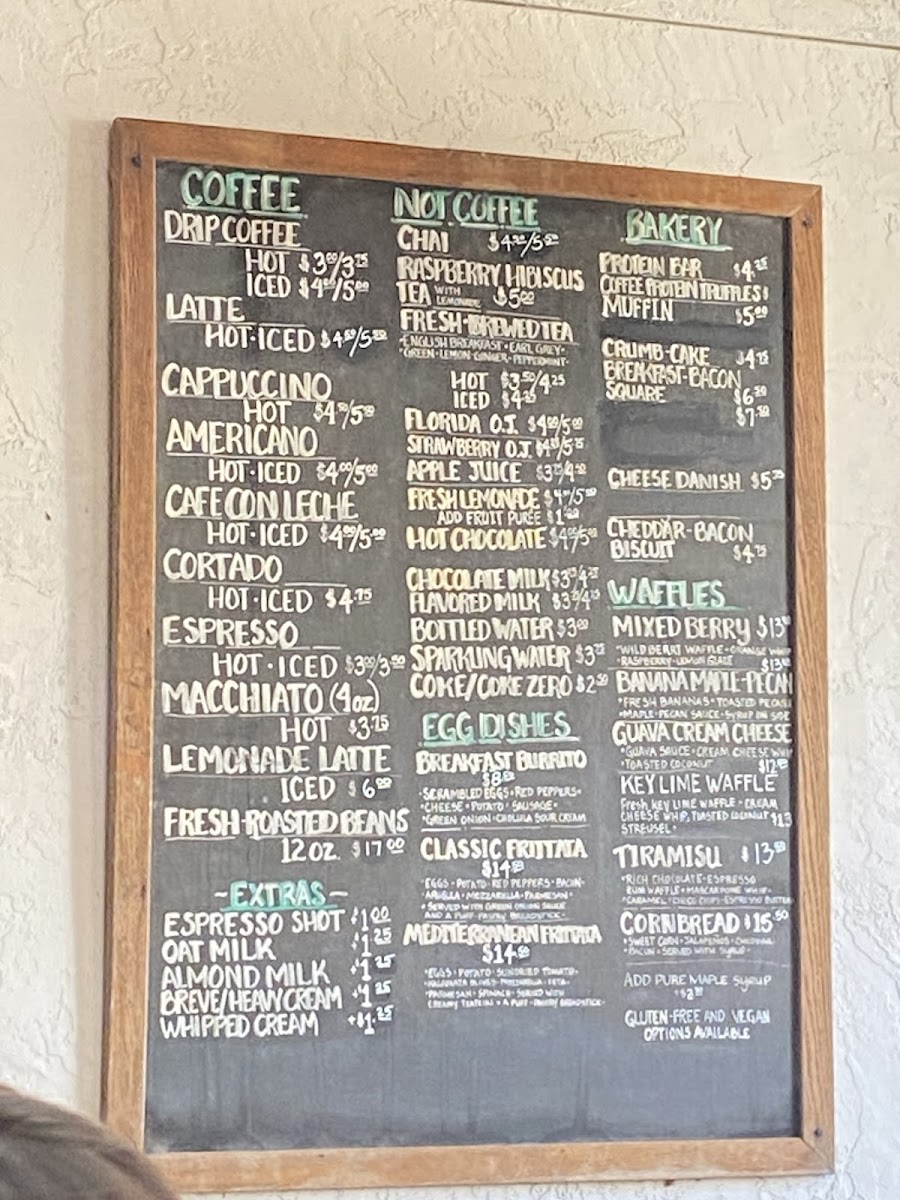 COFFEE
DRIP COFFEE
HOT $3.00/3.75
ICED $4.00/5.00
LATTE
HOT·ICED $4.50/5.50
CAPPUCCINO
HOT $4.50/5.50
AMERICANO
HOT·ICED $4.00/5.00
CAFE CON LECHE
HOT·ICED $4.00/5.00
CORTADO
HOT·ICED $4.75
ESPRESSO
HOT·ICED $3.00/3.50
MACCHIATO (4oz)
HOT $3.75
LEMONADE LATTE
ICED $6.00
FRESH-ROASTED BEANS
12 OZ. $17.00
-EXTRAS-
ESPRESSO SHOT +$1.00
OAT MILK +$1.25
ALMOND MILK +$1.25
BREVE/HEAVY CREAM +$1.25
WHIPPED CREAM +$1.25
NOT COFFEE
CHAI
RASPBERRY HIBISCUS
TEA WITH LEMONADE $5.00
FRESH-BREWED TEA
·ENGLISH BREAKFAST·EARL GREY·
·GREEN·LEMON-GINGER·PEPPERMINT·
HOT $3.50/4.25
ICED
FLORIDA O.J. $4.00/5.00
STRAWBERRY O.J.
APPLE JUICE
FRESH LEMONADE
ADD FRUIT PURÉE
HOT CHOCOLATE
CHOCOLATE MILK
FLAVORED MILK
BOTTLED WATER $3.00
SPARKLING WATER
COKE/COKE ZERO $2.50
EGG DISHES
BREAKFAST BURRITO
·SCRAMBLED EGGS·RED PEPPERS·
·CHEESE·POTATO·SAUSAGE·
·GREEN ONION·CHOLULA SOUR CREAM
CLASSIC FRITTATA
·EGGS·POTATO·RED PEPPERS·BACON·
ARUGULA·MOZZARELLA·PARMESAN·
·SERVED WITH GREEN ONION SAUCE
AND A PUFF-PASTRY BREADSTICK·
MEDITERRANEAN FRITTATA
$14.50
·EGGS·POTATO·SUNDRIED TOMATO·
KALAMATA OLIVES·MOZZARELLA·FETA·
·PARMESAN·SPINACH·SERVED WITH
CREAMY TZATZIKI & A PUFF-PASTRY BREADSTICK·
BAKERY
PROTEIN BAR $4.25
COFFEE PROTEIN TRUFFLES
MUFFIN $5.00
CRUMB-CAKE $4.75
BREAKFAST-BACON
SQUARE $6.50
$7.50
CHEESE DANISH
CHEDDAR-BACON
BISCUIT $4.75
WAFFLES
MIXED BERRY
·WILD BERRY WAFFLE·ORANGE WHIP
·RASPBERRY-LEMON GLAZE
BANANA MAPLE-PECAN
·FRESH BANANAS·TOASTED PECANS
·MAPLE-PECAN SAUCE·SYRUP ON SIDE
GUAVA CREAM CHEESE
·GUAVA SAUCE·CREAM CHEESE WHIP
·TOASTED COCONUT
KEY LIME WAFFLE
Fresh KEY LIME WAFFLE·CREAM
CHEESE WHIP, TOASTED COCONUT $13
STREUSEL·
TIRAMISU
·RICH CHOCOLATE-ESPRESSO
RUM WAFFLE·MASCARPONE WHIP·
·CARAMEL·CHOCO CHIPS·ESPRESSO BUTTER
CORNBREAD $15.50
·SWEET CORN·JALAPEÑOS·CHEDDAR·
·BACON·SERVED WITH SYRUP·
ADD PURE MAPLE SYRUP
GLUTEN-FREE AND VEGAN
OPTIONS AVAILABLE